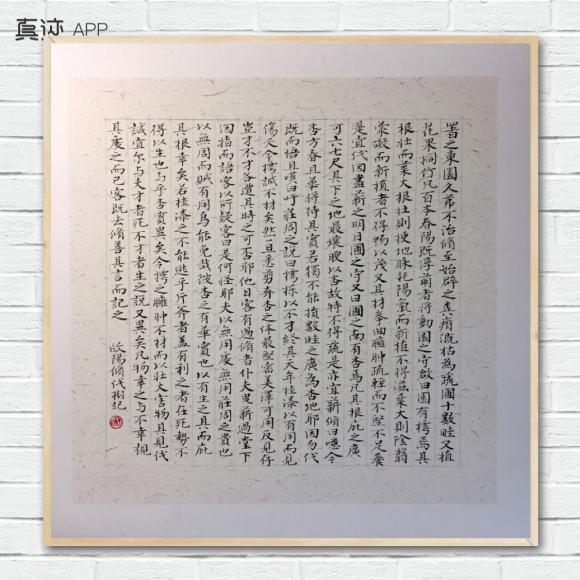 真迹 APP
署之東園久茀不治脩至始辟之糞瘠溉枯為蔬圃十數畦又植
花果桐竹凡百本春陽既浮萌者將動園之守啟曰園有樗焉其
根壯而葉大根壯則梗地脉耗陽氣而新植不得滋葉大則陰翳
蒙礙而新植者不得暢以茂又其材拳曲臃腫疏輕而不堅不足養
是宜伐因盡薪之明日圃之守又曰圃之南有杏焉凡其根庇之廣
可六七尺其下之地最壤腴以杏故特不得蔬是亦宜薪脩曰噫今
杏方春且華將待其實若獨不能損數畦之廣為杏地耶因勿伐
既而悟且嘆曰吁莊周之說曰樗櫟以不才終其天年桂漆以有用而見
傷夭今樗誠不材矣然一旦悉剪弃杏之体最堅密美澤可用反見存
豈才不才各遭其時之可否耶他日客有過脩者仆夫曳薪過堂下
因指而語客以所疑客曰是何怪耶夫以無用處無用莊周之貴也
以無用而賊有用烏能免哉彼杏之有華實也以有生之具而庇
其根幸矣若桂漆之不能逃乎斤斧者蓋有利之者在死勢不
得以生也与乎杏實異矣今樗之臃肿不材而以壯大害物其見伐
誠宜尔与夫才者死不才者生之說又異矣凡物幸之与不幸視
其處之而已客既去脩善其言而記之
歐陽脩伐樹記